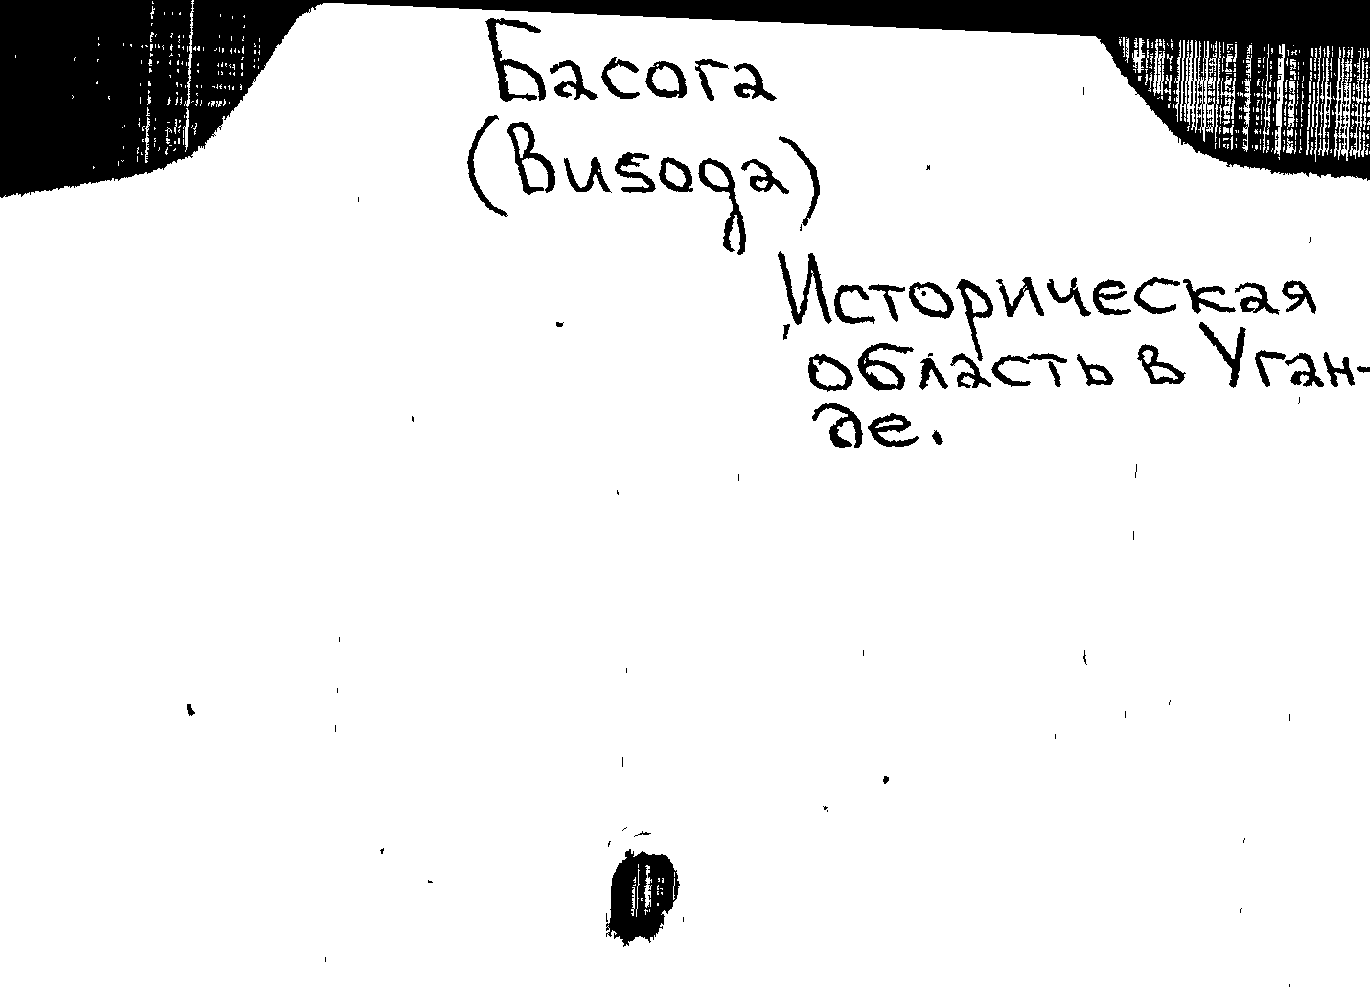 Басога
(Busoga)
Историческая
область в Уган-
де.